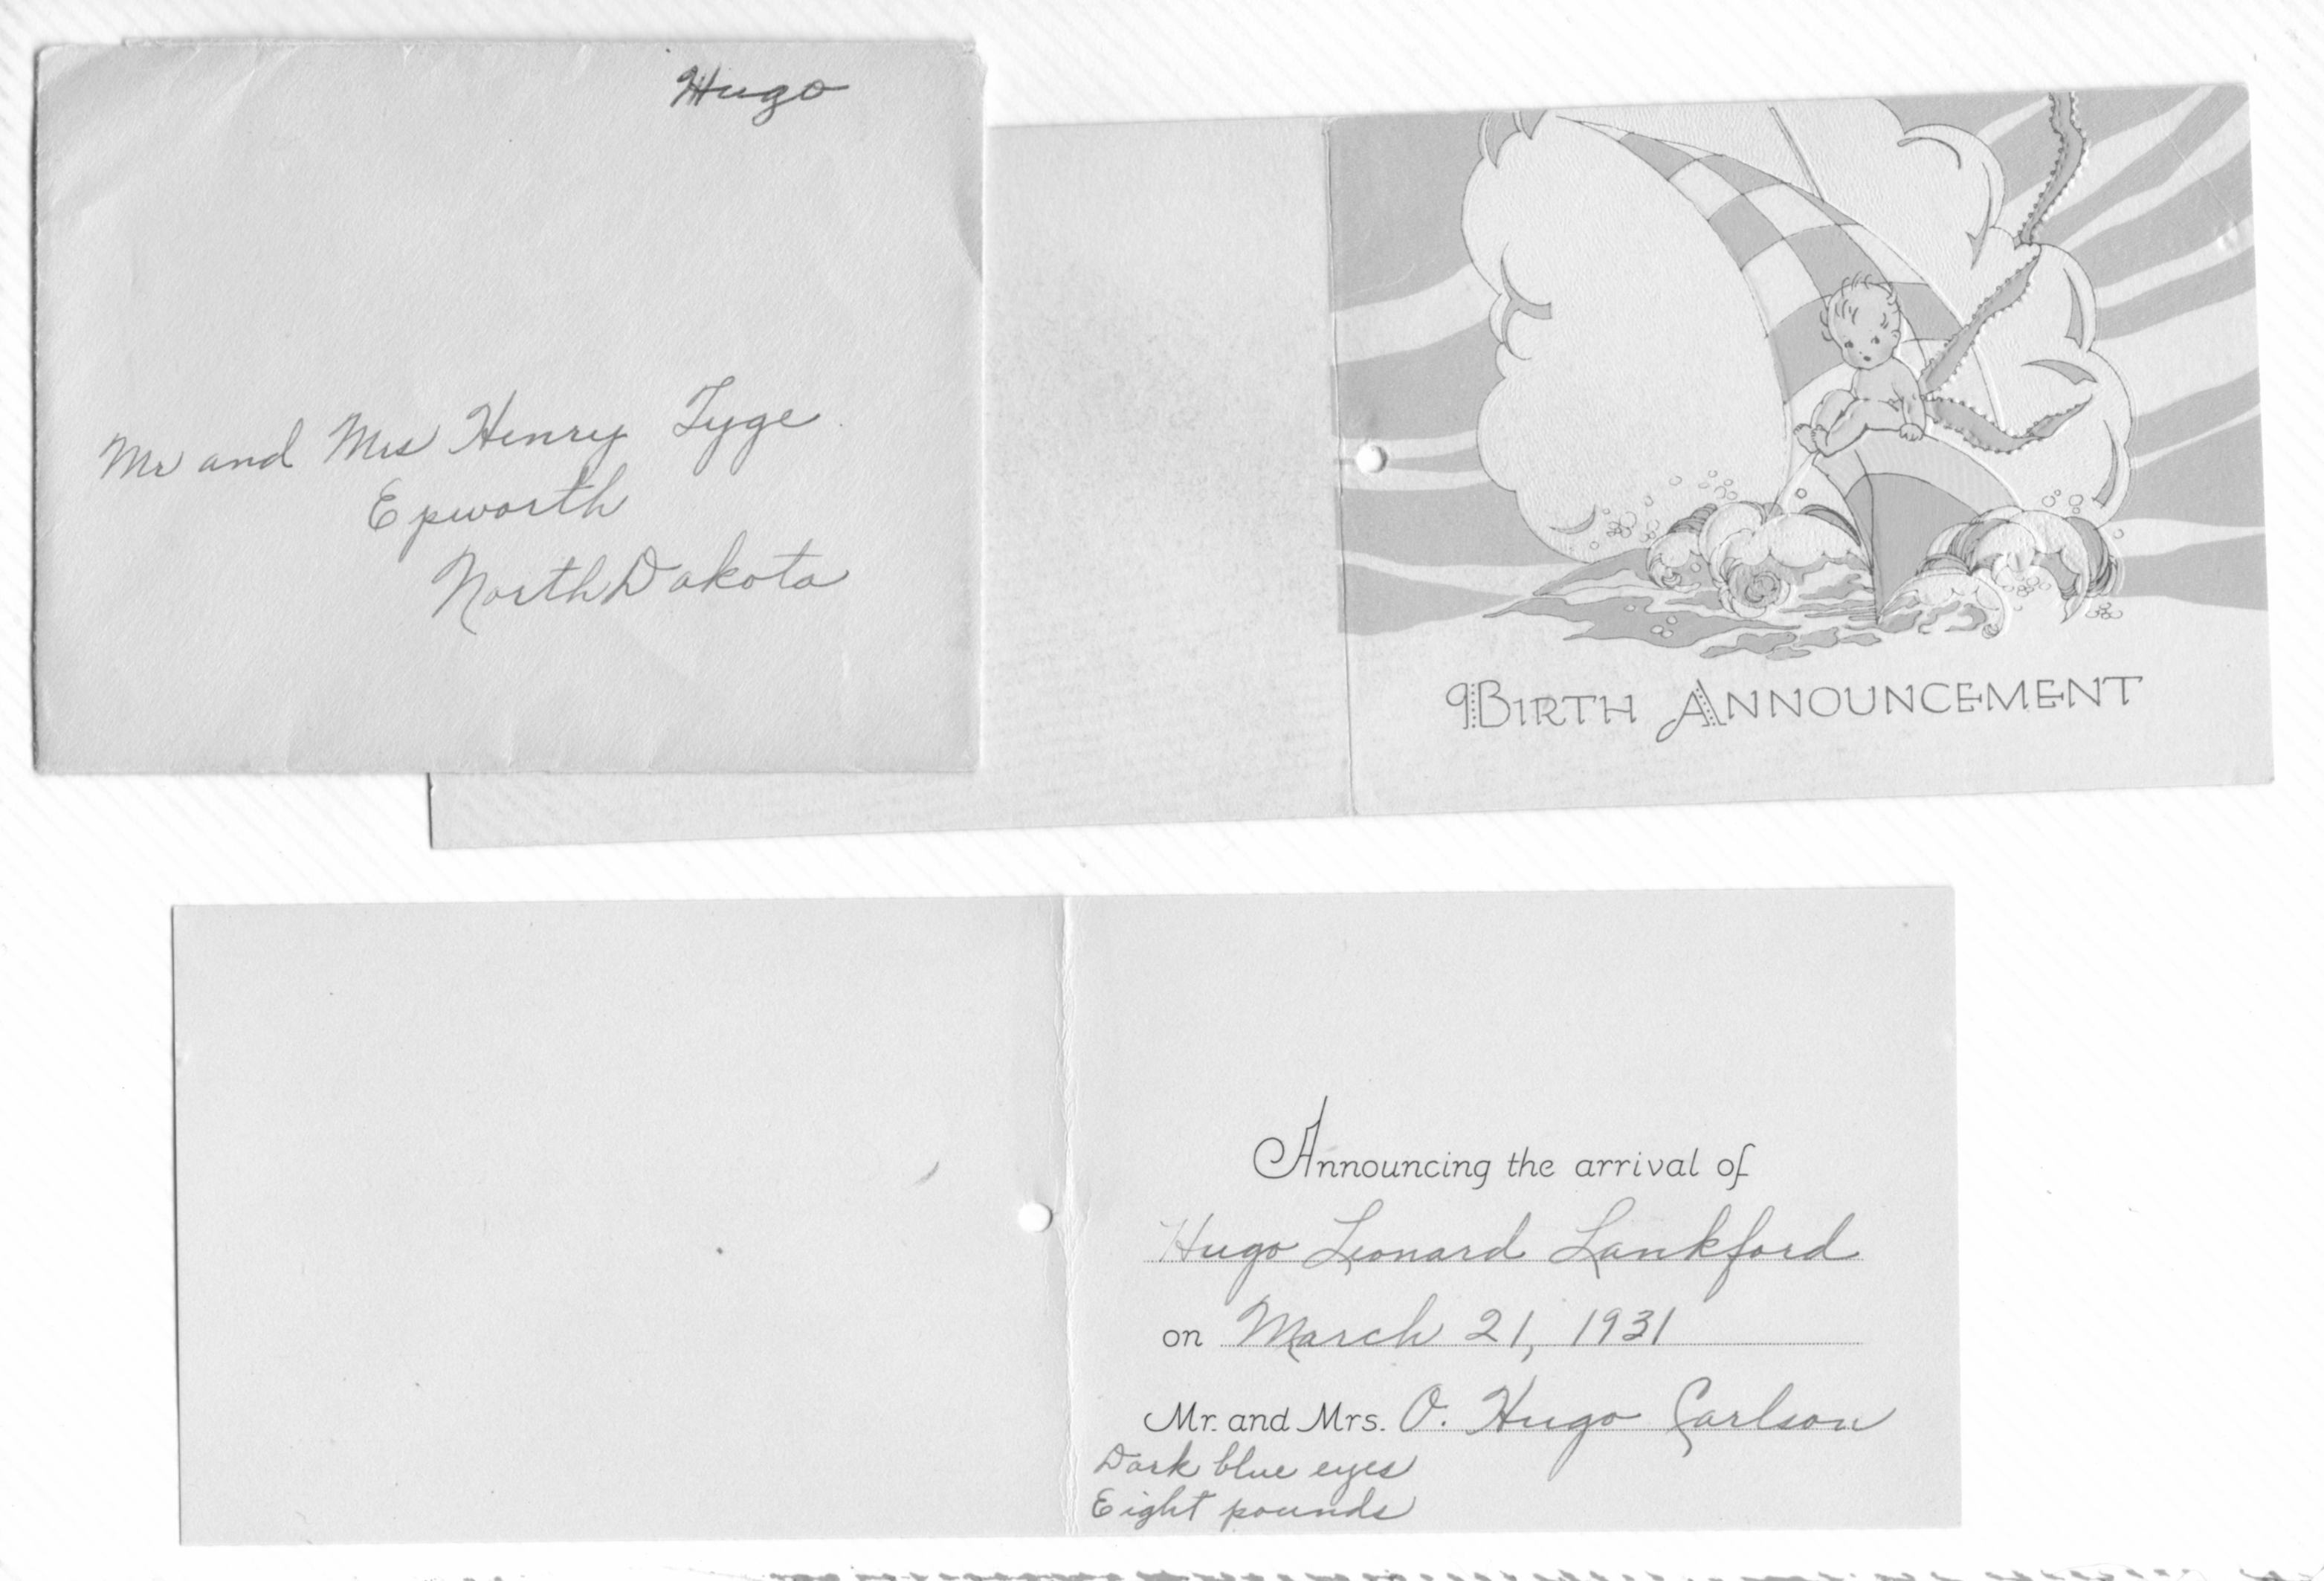 Hugo
Mr and Mrs Henry Tyge
Epworth
North Dakota
BIRTH ANNOUNCEMENT
Announcing the arrival of
Hugo Leonard Lankford
on March 21, 1931
Mr. and Mrs. O. Hugo Carlson
Dark blue eyes
Eight pounds